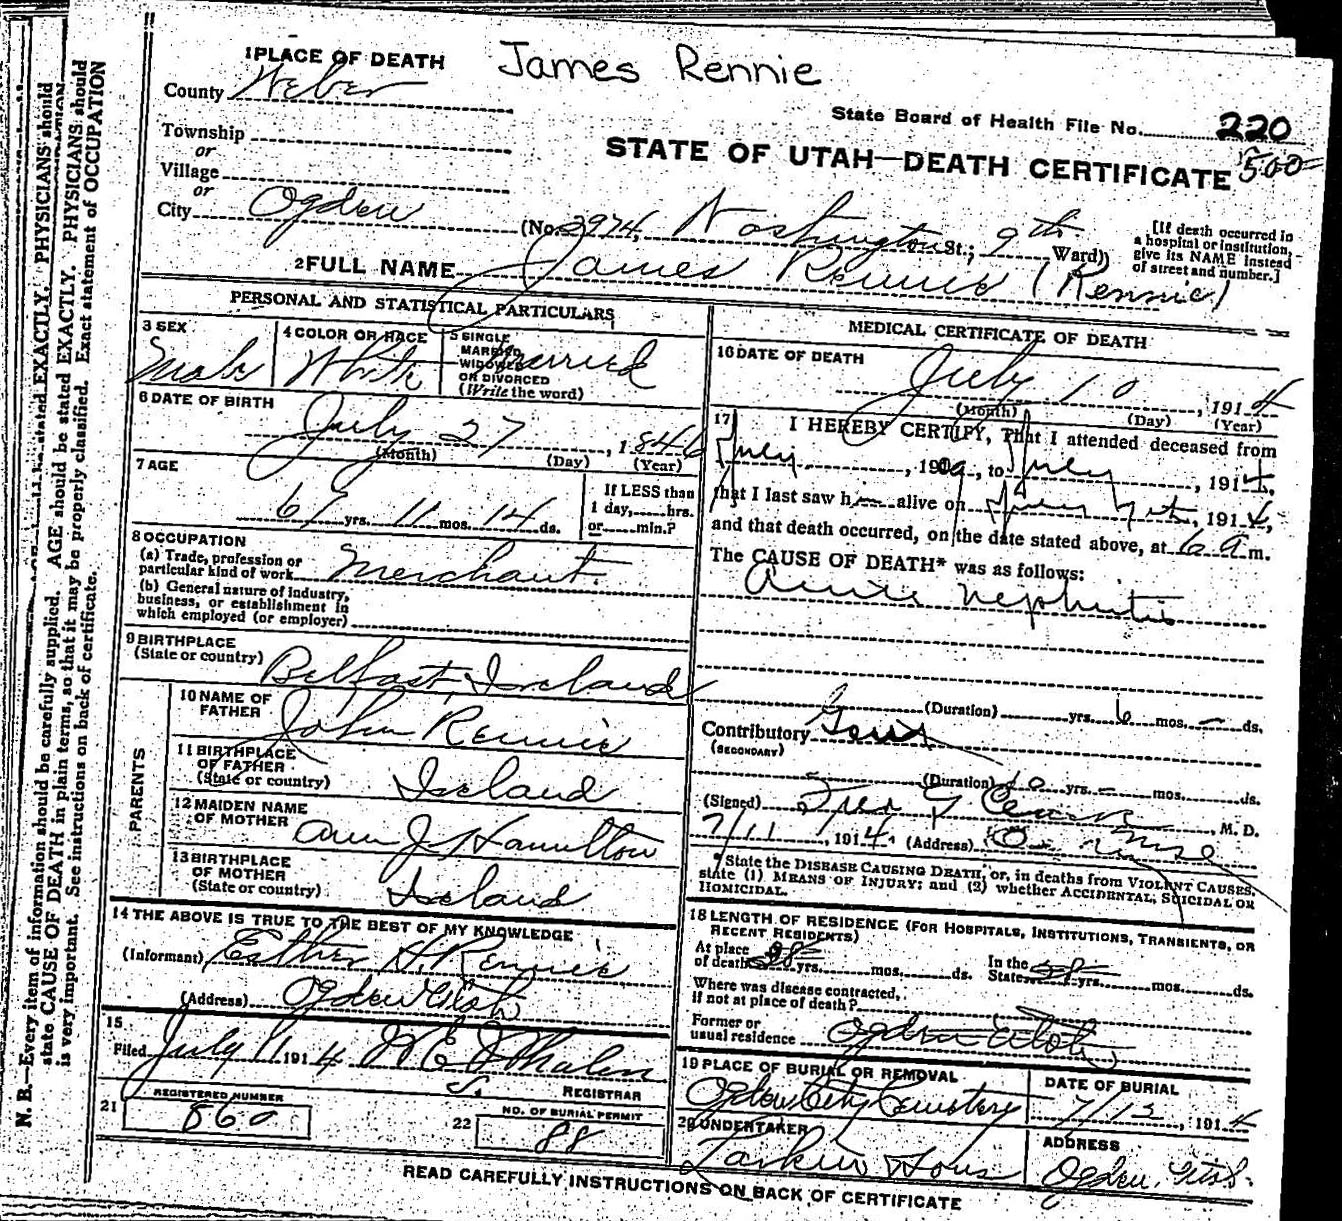 James Rennie
1 PLACE OF DEATH
County Weber
State Board of Health File No. 220
Township
or
STATE OF UTAH—DEATH CERTIFICATE 500
Village
or
City Ogden
(No. 2974, Washington St.; 9th Ward)
[If death occurred in
a hospital or institution,
give its NAME instead
of street and number.]
2 FULL NAME James Rennie (Rennie)
PERSONAL AND STATISTICAL PARTICULARS
3 SEX
Male
4 COLOR OR RACE
White
5 SINGLE
MARRIED
WIDOWED
OR DIVORCED
(Write the word)
Married
6 DATE OF BIRTH
July 27, 1846
(Month) (Day) (Year)
7 AGE
67 yrs. 11 mos. 14 ds.
If LESS than
1 day, hrs.
or min.?
8 OCCUPATION
(a) Trade, profession or
particular kind of work Merchant
(b) General nature of industry,
business, or establishment in
which employed (or employer)
9 BIRTHPLACE
(State or country) Belfast, Ireland
PARENTS
10 NAME OF
FATHER John Rennie
11 BIRTHPLACE
OF FATHER
(State or country) Ireland
12 MAIDEN NAME
OF MOTHER Ann J. Hamilton
13 BIRTHPLACE
OF MOTHER
(State or country) Ireland
14 THE ABOVE IS TRUE TO THE BEST OF MY KNOWLEDGE
(Informant) Esther H. Rennie
(Address) Ogden Utah
15
Filed July 11 1914
REGISTRAR
21 REGISTERED NUMBER
860
22 NO. OF BURIAL PERMIT
88
MEDICAL CERTIFICATE OF DEATH
16 DATE OF DEATH
July 10, 1914
(Month) (Day) (Year)
17 I HEREBY CERTIFY, That I attended deceased from
July, 190, to July, 1914,
that I last saw h alive on, 1914,
and that death occurred, on the date stated above, at 6 a m.
The CAUSE OF DEATH* was as follows:
Acute Nephritis
(Duration) yrs. 6 mos. – ds.
Contributory Gout
(SECONDARY)
(Duration) 10 yrs. – mos. ds.
(Signed) M. D.
7/11, 1914. (Address)
*State the DISEASE CAUSING DEATH, or, in deaths from VIOLENT CAUSES,
state (1) MEANS OF INJURY; and (2) whether ACCIDENTAL, SUICIDAL OR
HOMICIDAL.
18 LENGTH OF RESIDENCE (FOR HOSPITALS, INSTITUTIONS, TRANSIENTS, OR
RECENT RESIDENTS)
At place
of death 38 yrs. mos. ds.
In the
State 38 yrs. mos. ds.
Where was disease contracted,
if not at place of death?
Former or
usual residence Ogden Utah
19 PLACE OF BURIAL OR REMOVAL
Ogden City Cemetery
DATE OF BURIAL
7/12, 1914
20 UNDERTAKER
Larkin & Sons
ADDRESS
Ogden, Utah.
READ CAREFULLY INSTRUCTIONS ON BACK OF CERTIFICATE
N. B.—Every item of information should be carefully supplied. AGE should be stated EXACTLY. PHYSICIANS should
state CAUSE OF DEATH in plain terms, so that it may be properly classified. Exact statement of OCCUPATION
is very important. See instructions on back of certificate.